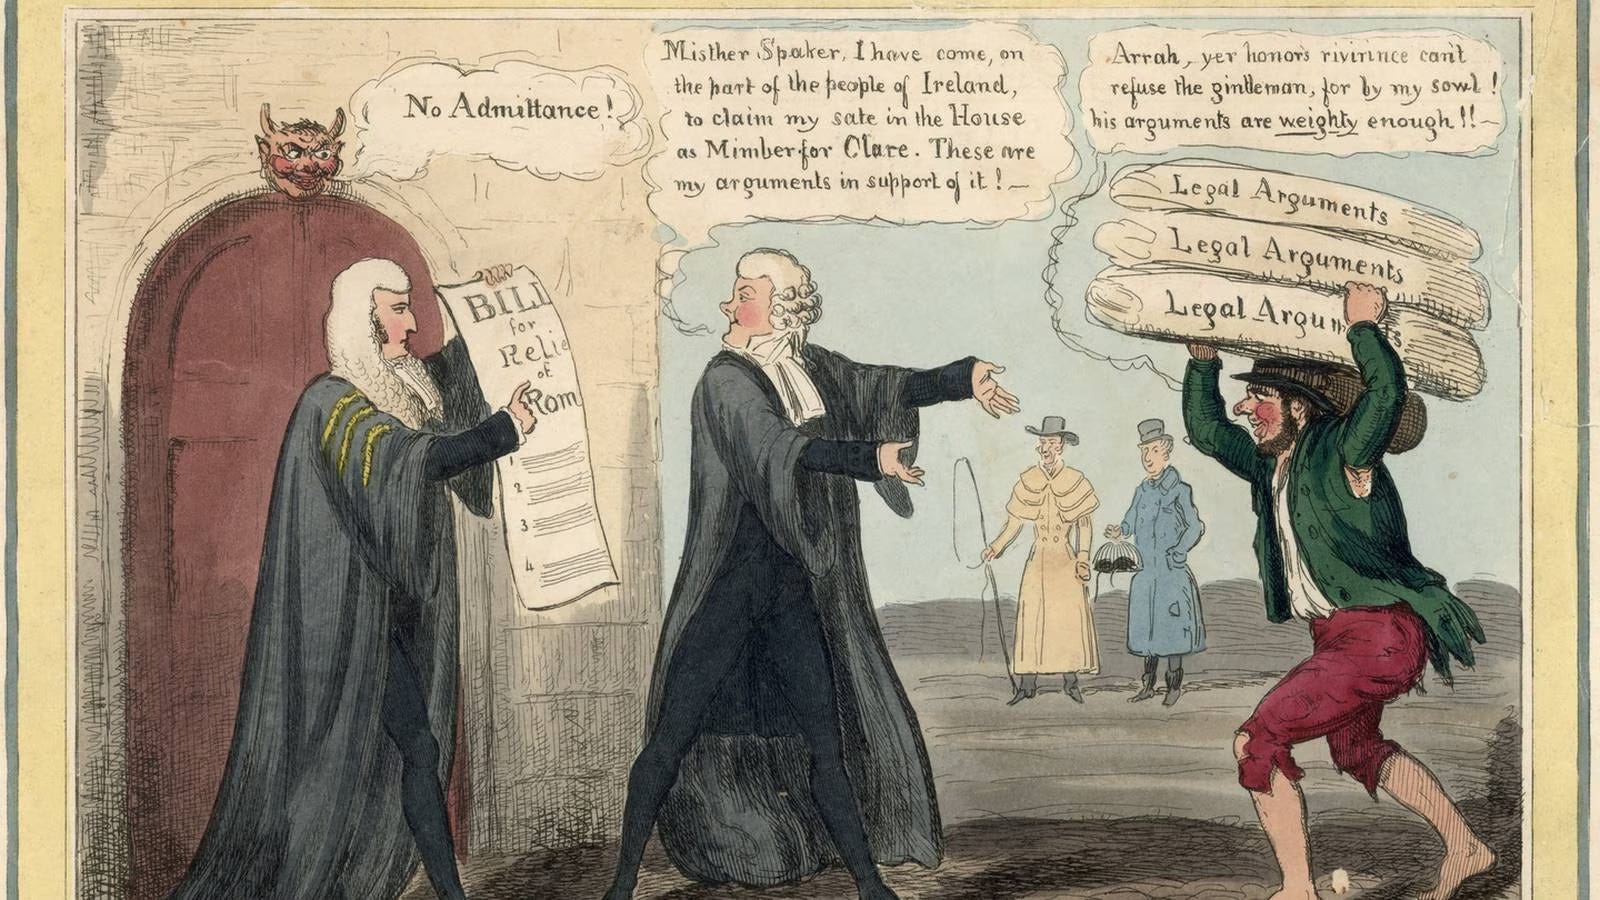 No Admittance!
Misther Spaker, I have come, on
the part of the people of Ireland,
to claim my sate in the House
as Mimber for Clare. These are
my arguments in support of it! —
Arrah, yer honor's rivirince can't
refuse the gintleman, for by my sowl!
his arguments are weighty enough!! —
Legal Arguments
Legal Arguments
Legal Argum s
BILL
for
Relie
of
Rom
1
2
3
4